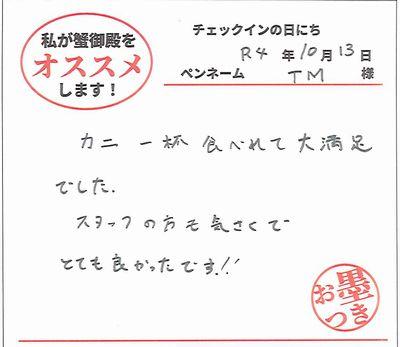 私が蟹御殿を
オススメ
します！
チェックインの日にち
R4 年 10 月 13 日
ペンネーム TM 様
カニ 一杯 食べれて 大満足
でした.
スタッフの方も気さくで
とても良かったです!!
お墨つき